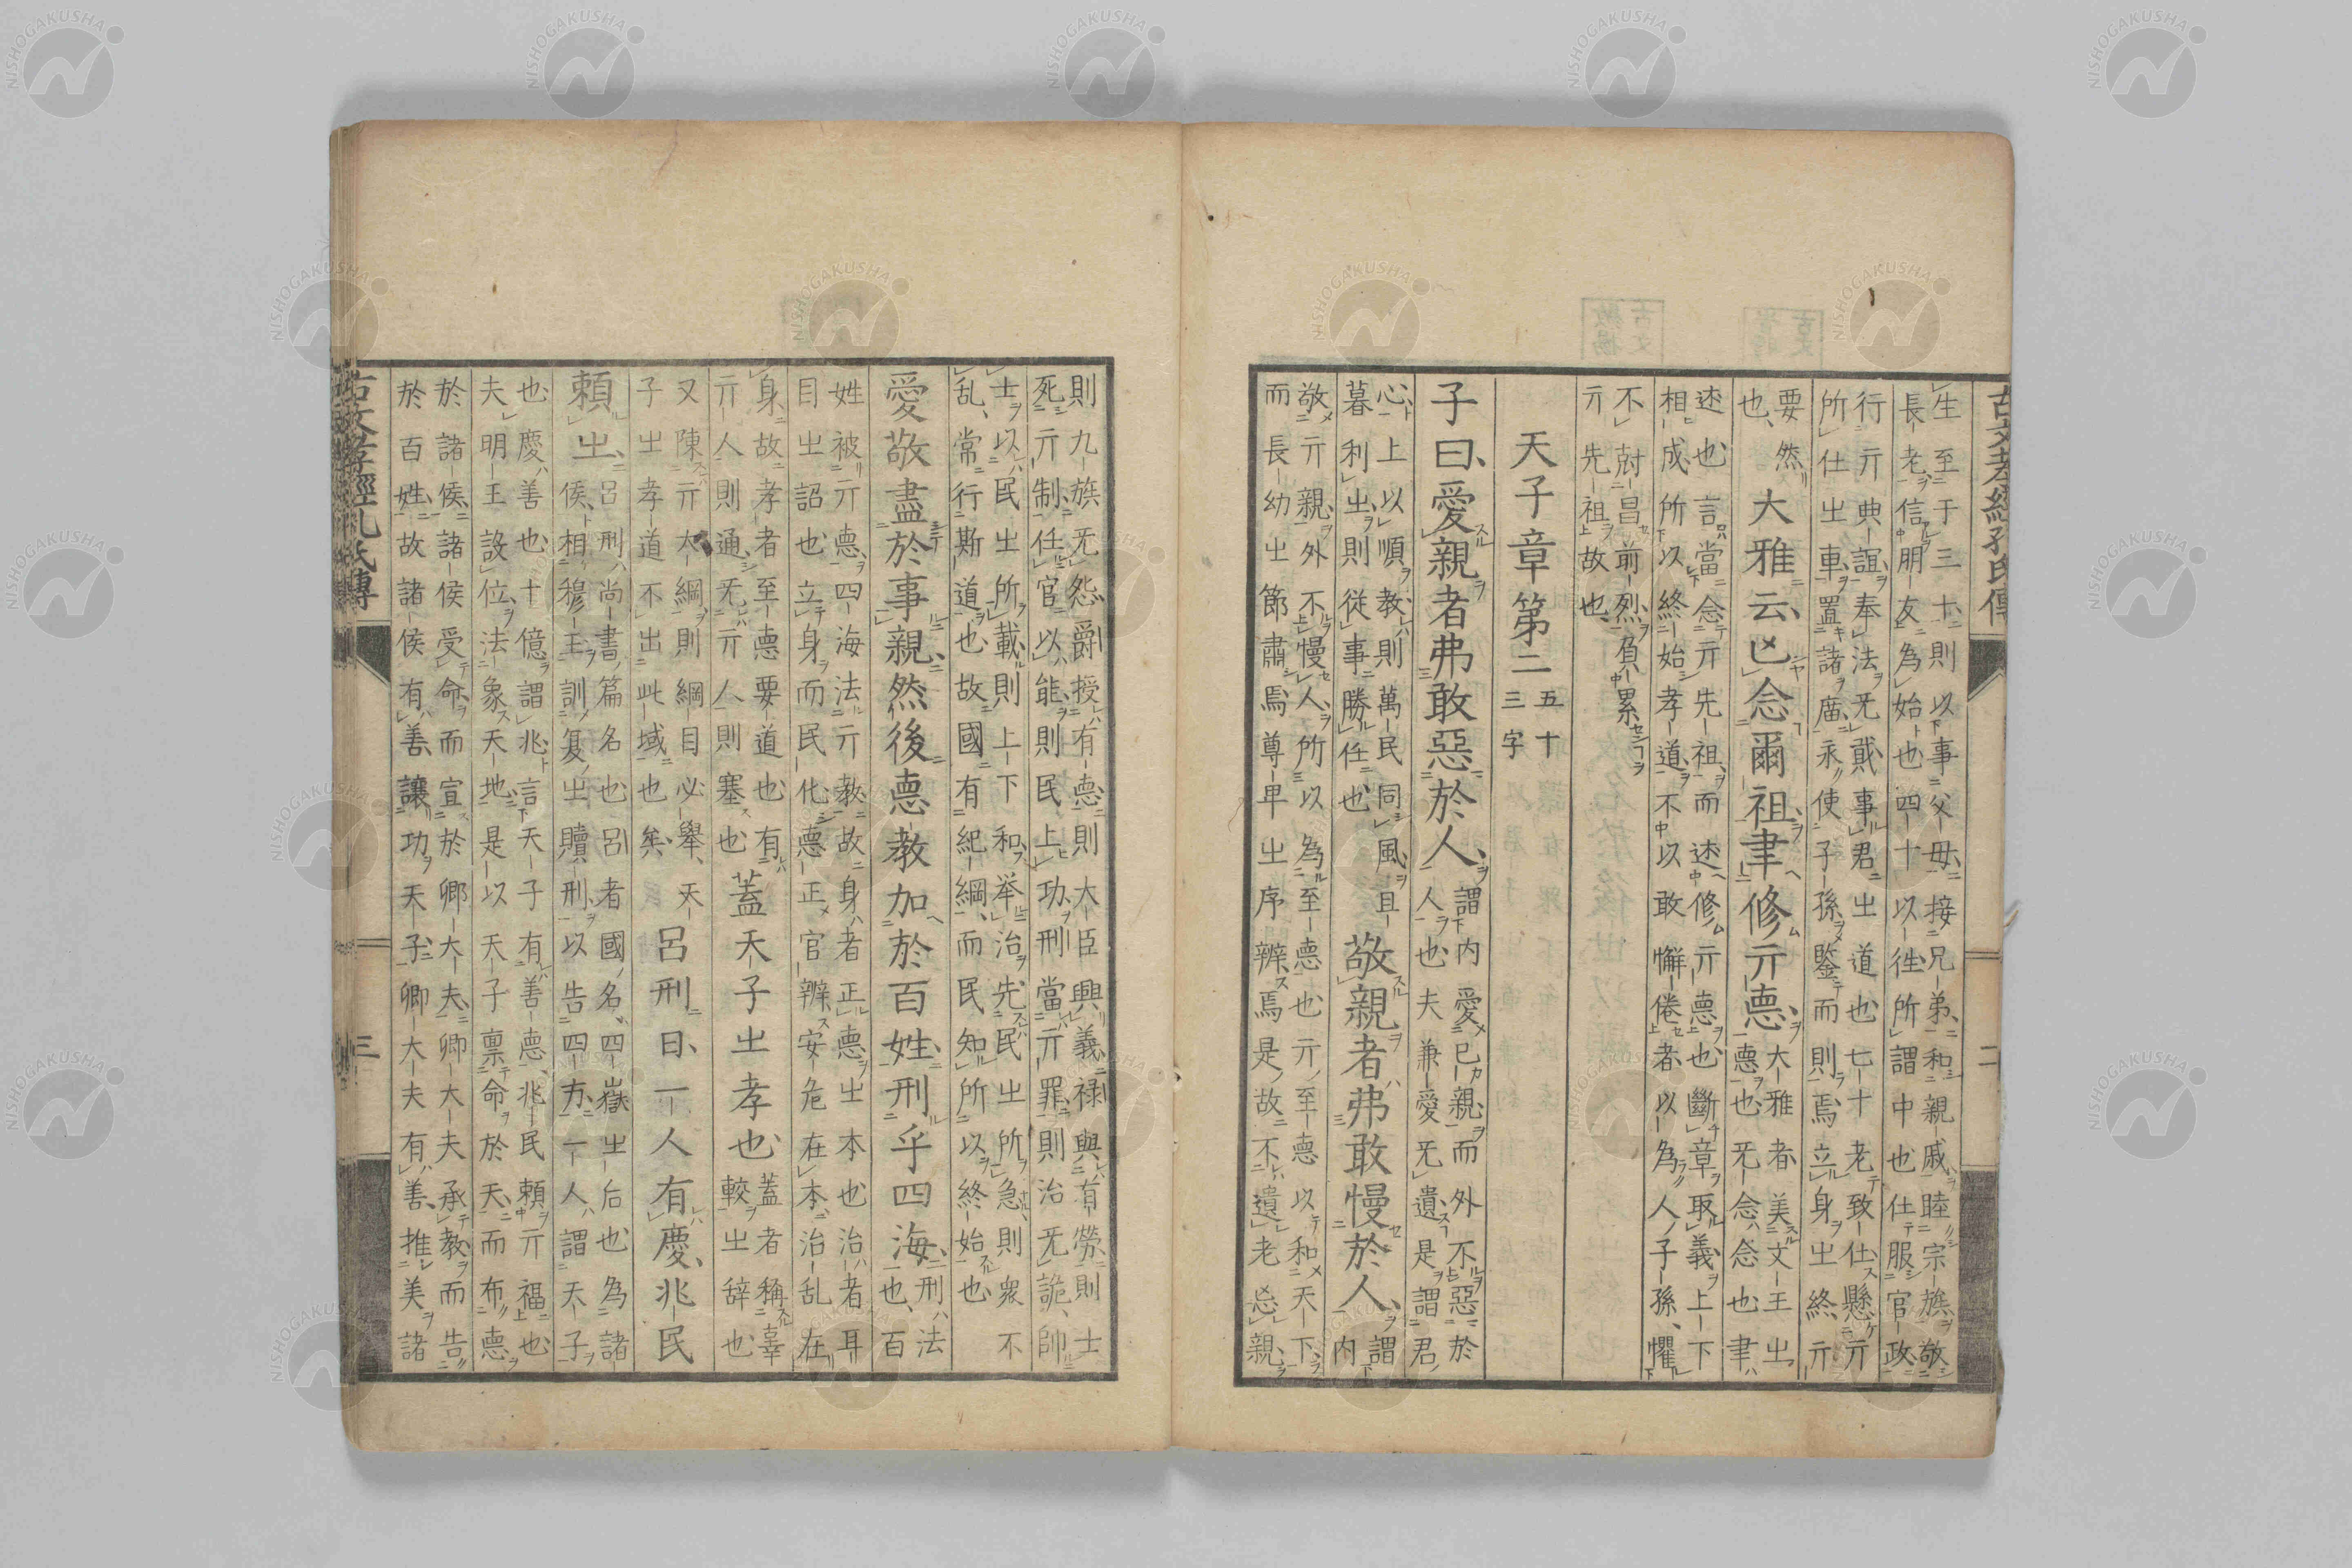 古文孝經孔氏傳
二
生至于三十則以事父母接兄弟和親戚睦宗族敬
長老信朋友為始也四十以往所謂中也仕服官政
行亓典誼奉法旡貳事君㞢道也七十老致仕懸亓
所仕㞢車置諸廟永使子孫鑒而則焉立身㞢終亓
要然也
大雅云亾念爾祖聿修亓悳
大雅者美文王㞢悳也旡念念也聿
述也言當念亓先祖而述修亓悳也斷章取義上下
相成所以終始孝道不以敢懈倦者以為人子孫懼
不尅昌前烈負累
亓先祖故也
天子章第二
五十三字
子曰愛親者弗敢惡於人
謂内愛己親而外不惡於
人也夫兼愛旡遺是謂君
心上以順教則萬民同風且
暮利㞢則從事勝任也
敬親者弗敢慢於人
謂内
敬亓親外不慢人所以為至悳也亓至悳以和天下
而長幼㞢節肅焉尊卑㞢序辨焉是故不遺老忘親
則九族旡怨爵授有悳則大臣興義祿與有勞則士
死亓制任官以能則民上功刑當亓罪則治旡詭帥
士以民㞢所載則上下和举治先民㞢所急則衆不
乱常行斯道也故國有紀綱而民知所以終始也
愛敬盡於事親然後悳教加於百姓刑乎四海
刑法也百
姓被亓悳四海法亓教故身者正悳㞢本也治者耳
目㞢詔也立身而民化悳正官辨安危在本治乱在
身故孝者至悳要道也有
亓人則通旡亓人則塞也
蓋天子㞢孝也
蓋者稱辜
較㞢辞也
又陳亓大綱則綱目必舉天
子㞢孝道不出此域也矣
呂刑曰一人有慶兆民
頼㞢
呂刑尚書篇名也呂者國名四嶽㞢后也為諸
侯相穆王訓夏㞢贖刑以告四方一人謂天子
也慶善也十億謂兆言天子有善悳兆民頼亓福也
夫明王設位法象天地是以天子禀命於天而布悳
於諸侯諸侯受命而宣於卿大夫卿大夫承教而告
於百姓故諸侯有善讓功天子卿大夫有善推美諸
古文孝經孔氏傳
三